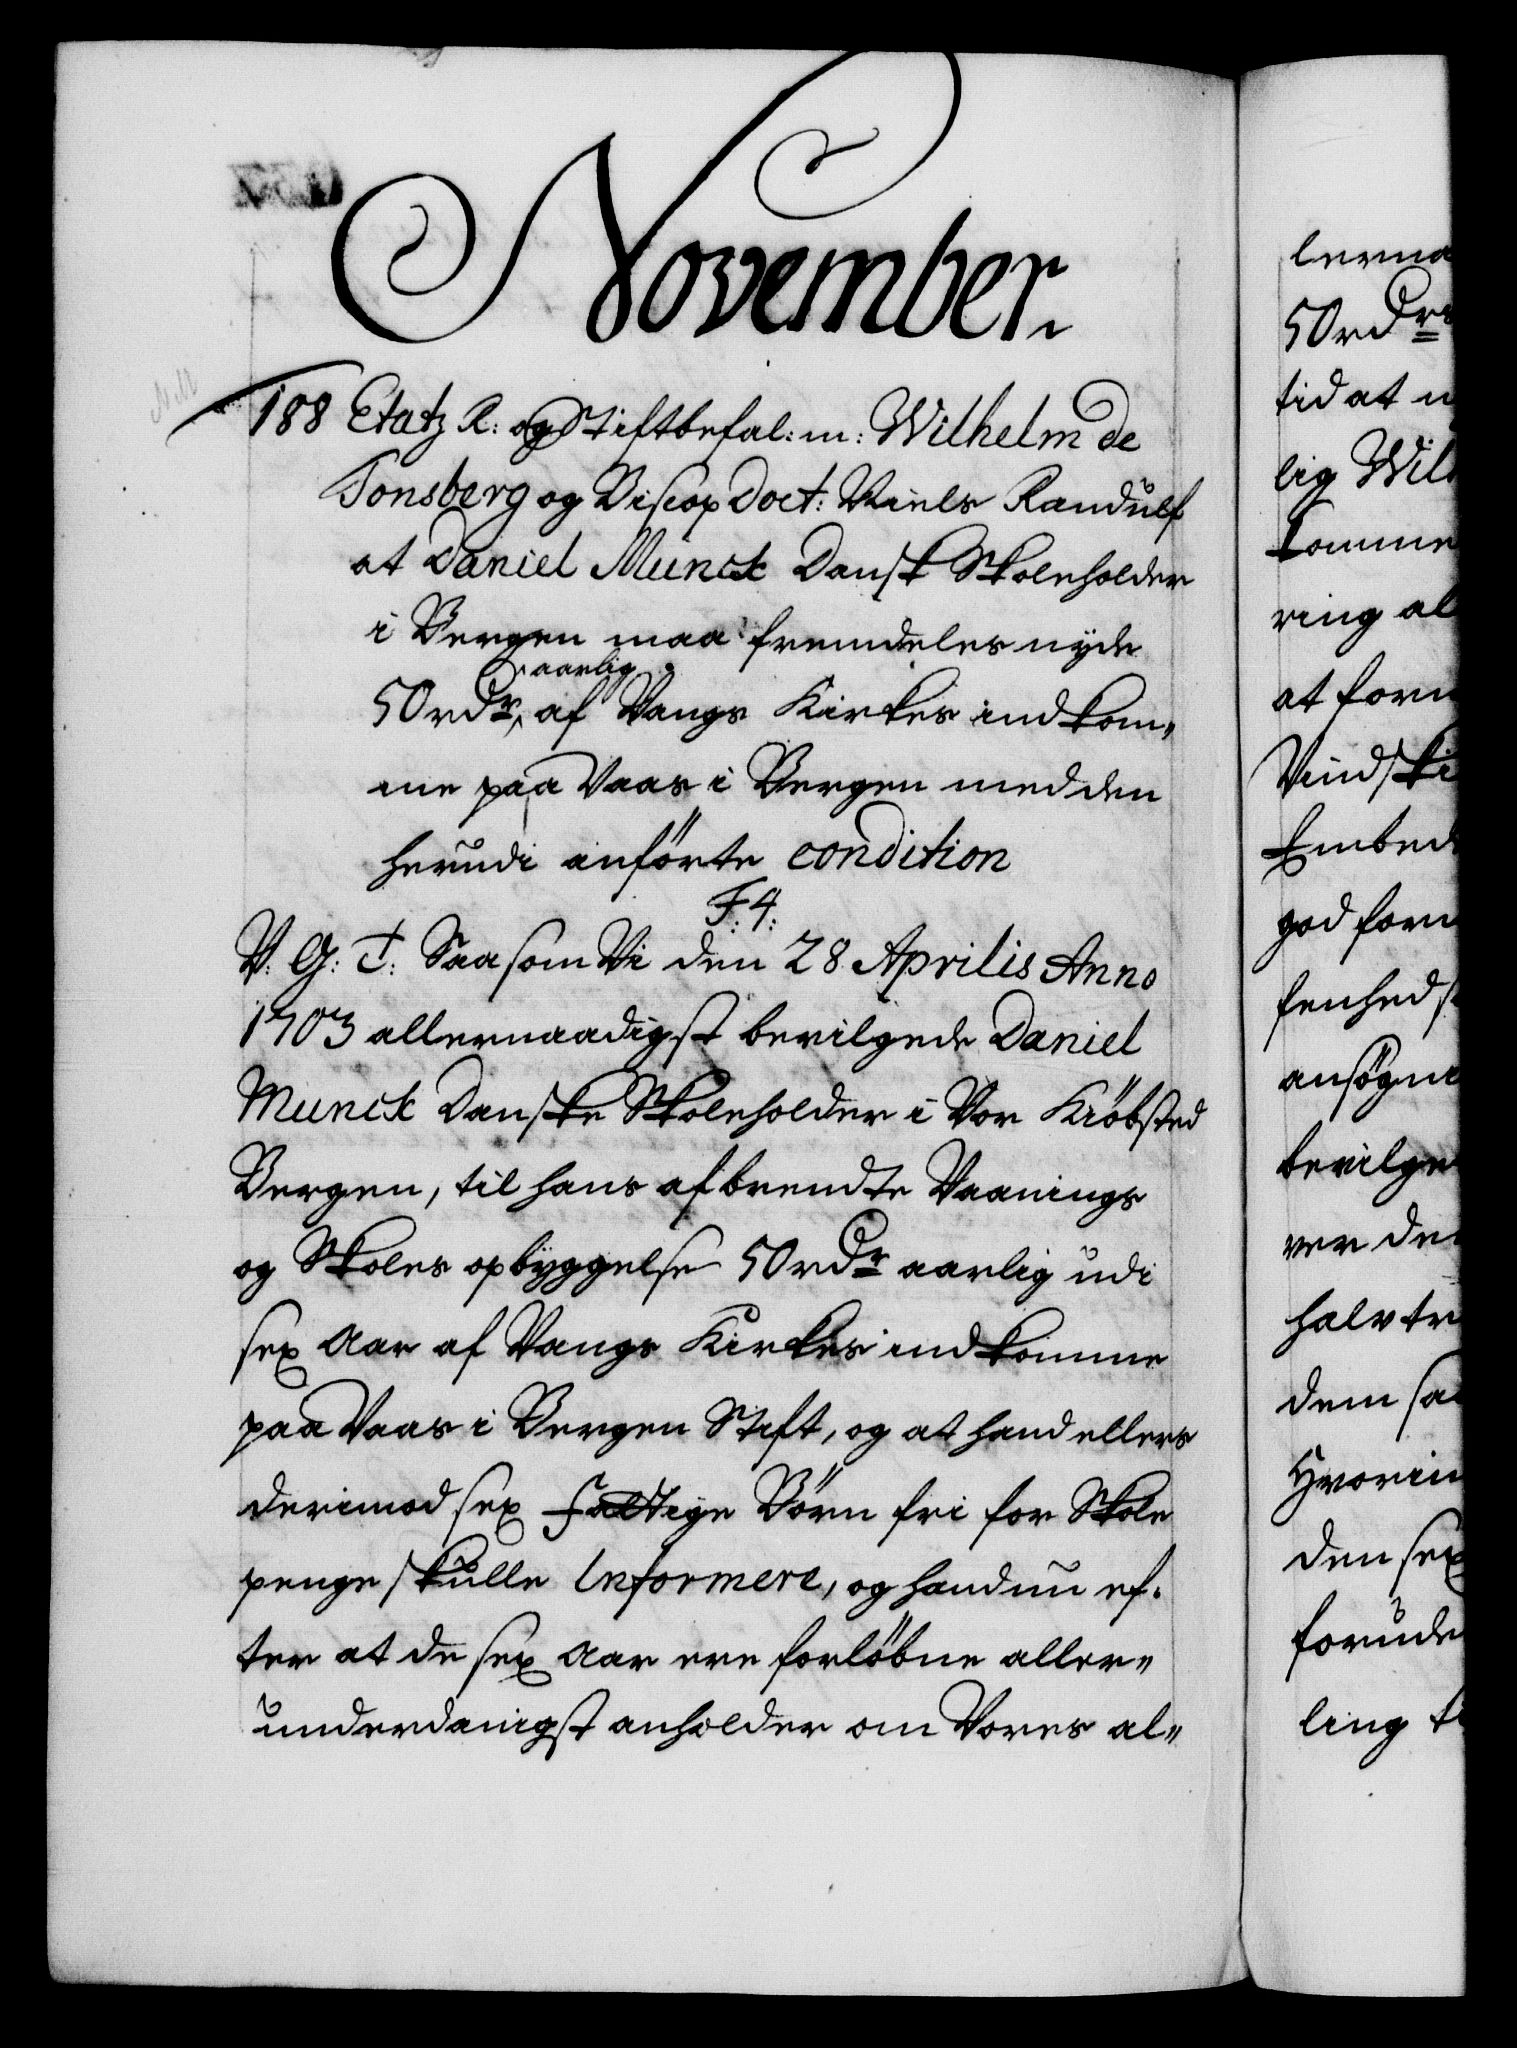 November.
188 Etatz R: og Stiftbefal: m: Wilhelm de
Tonsberg og Biscop Doct: Niels Randulf
at Daniel Munck Dansk Skoleholder
i Bergen maa fremdeles nyde
aarlig
50 rdr af Vangs Kirkes indkom„
me paa Vaas i Bergen med den
herudi anførte condition
F: 4:
V: G: T: Saasom Vi den 28 Aprilis Anno
1703 allernaadigst bevilgede Daniel
Munck Danske Skoleholder i Vor Kiøbsted
Bergen, til hans afbrendte Vaanings
og Skoles opbyggelse 50 rdr aarlig udi
sex Aar af Vangs Kirkes indkomme
paa Vaas i Bergen Stift, og at hand ellers
derimod sex Fattige Børn fri for Skole
penge skulle Informere, og hand nu ef-
ter at de sex Aar ere forløbne aller„
underdanigst anholder om Vores al„
lerna
50 rdrs
tid at
lig Wil
komme
ring al
at forn
Vindski
Embed
god forn
fenheds
ansøgni
bevilge
ver de
halvtr
dem sa
Hvorim
den sex
forude
ling ti